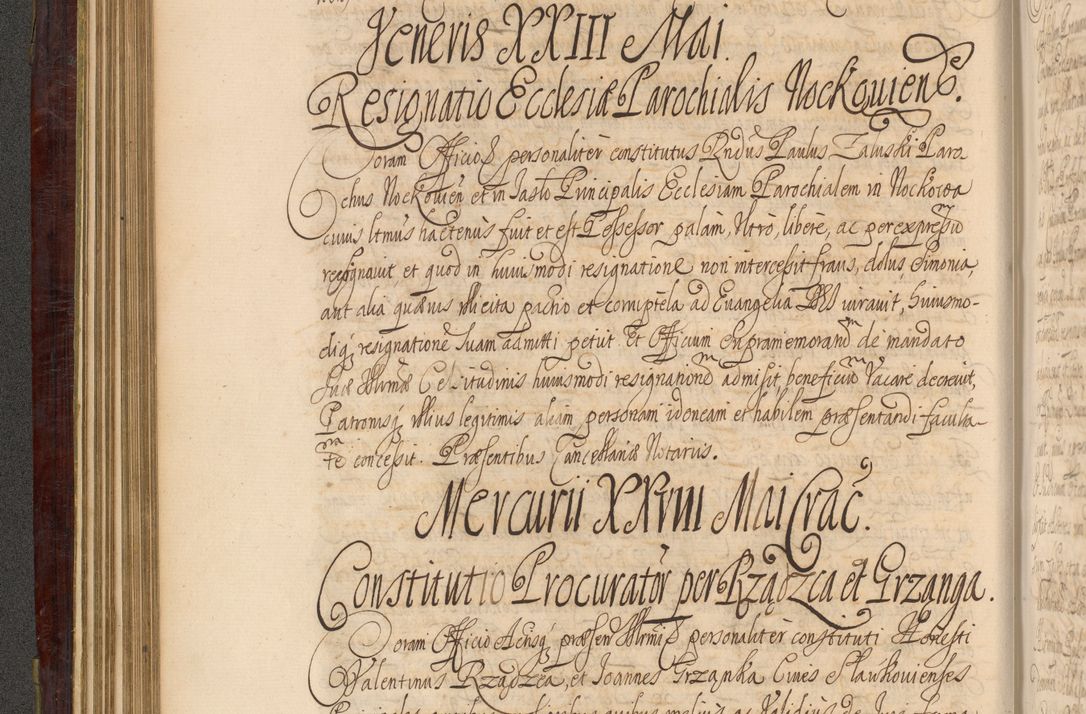 Veneris XXIII Mai.
Resignatio Ecclesiæ Parochialis Nockouiens.
Coram Officio personaliter constitutus Rndus Paulus Zaluski Paro
chus Nockouien et in Jasło Principalis Ecclesiam Parochialem in Nockowa
cuius ltmus hactenus fuit et est Possessor palam, Vltro, libere, ac per expressū
resignauit, et quod in huiusmodi resignatione non intercessit fraus, dolus, Simonia,
aut alia quæuis illicita pactio et corruptela ad Euangelia iurauit, huiusmo-
diq; resignatione suam admitti petiit. Et Officium supramemorand de mandato
suæ Illrmæ Celsitudinis huiusmodi resignatione admisit beneficiū Vacare decreuit,
Patronisq; illius legitimis aliam personam idoneam et habilem præsentandi faculta-
te concessit. Præsentibus Cancellariæ Notariis.
Mercurii XXVIII Mai Crac.
Constitutio Procurator per Rządzca et Grzanga.
Coram Officio Actisq; præsen Illrmi personaliter constituti Honesti
Valentinus Rządzca, et Joannes Grzanka Ciues Sławkouienses